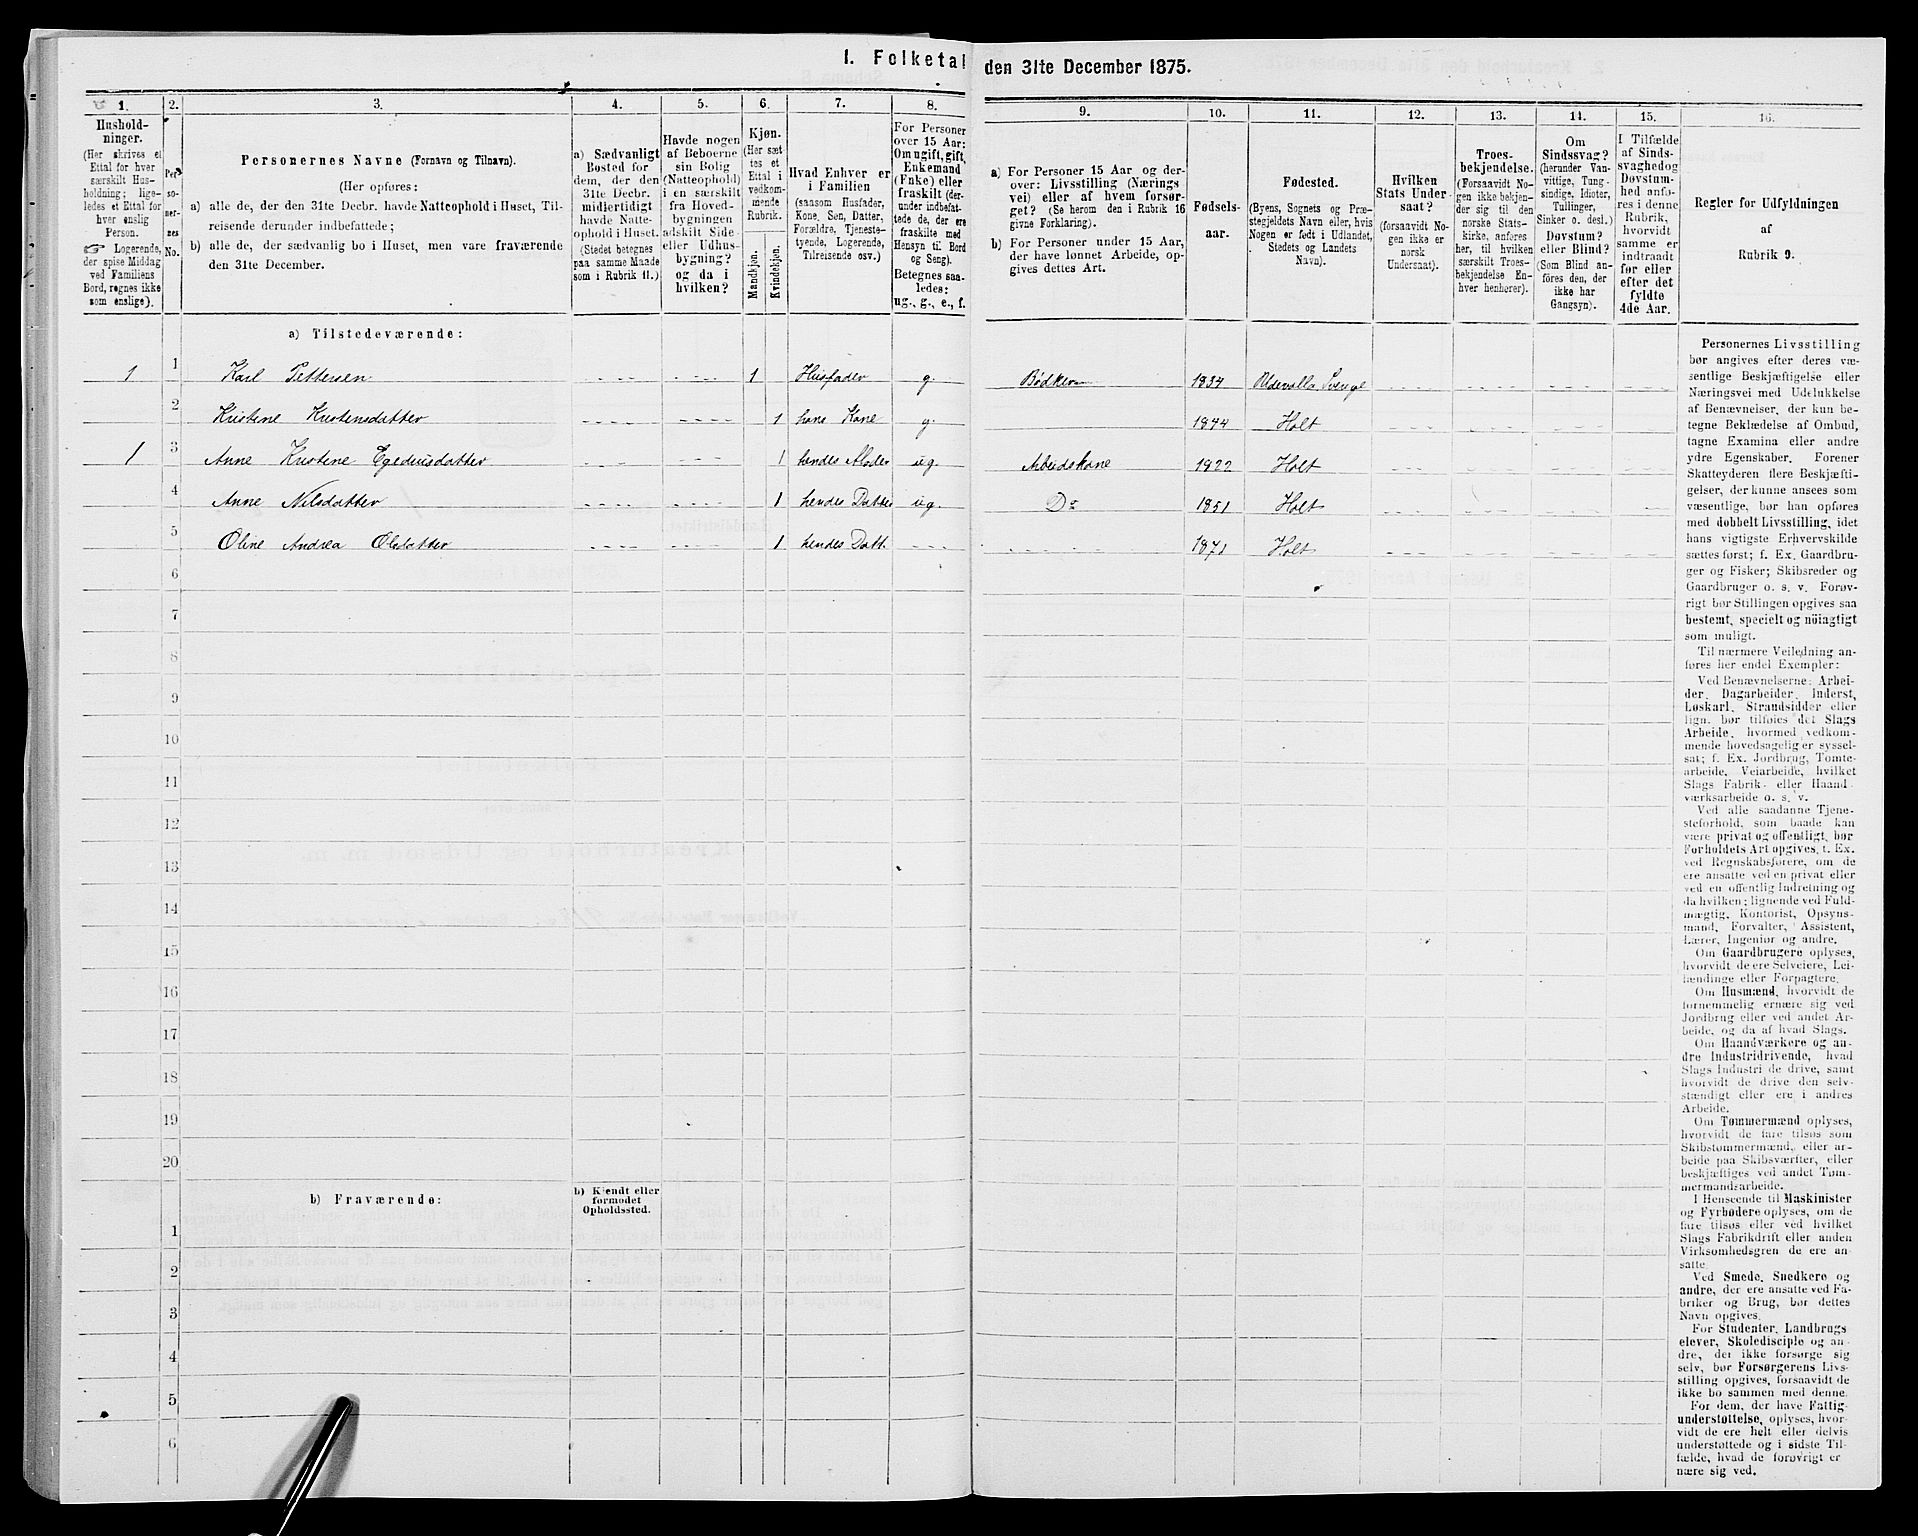 1. Folketal den 31te December 1875.
1. 2. 3. 4. 5. 6. 7. 8. 9. 10. 11. 12. 13. 14. 15. 16.
Hushold-
ninger.
(Her skrives et
Ettal for hver
særskilt Hus-
holdning; lige-
ledes et Ettal for
hver enslig
Person.
☞ Logerende,
der spise Middag
ved Familiens
Bord, regnes ikke
som enslige).
Per-
so-
ner-
nes
No.
Personernes Navne (Fornavn og Tilnavn).
(Her opføres:
a) alle de, der den 31te Decbr. havde Natteophold i Huset, Til-
reisende derunder indbefattede;
b) alle de, der sædvanlig bo i Huset, men vare fraværende
den 31te December.
a) Sædvanligt
Bosted for
dem, der den
31te Decbr.
midlertidigt
havde Natte-
ophold i Huset.
(Stedet betegnes
paa samme Maade
som i Rubrik 11.)
Havde nogen
af Beboerne
sin Bolig
(Natteophold)
i en særskilt
fra Hoved-
bygningen
adskilt Side-
eller Udhus-
bygning?
og da i
hvilken?
Kjøn.
(Her sæt-
tes et
Ettal i
vedkom-
mende
Rubrik.
Mandkjøn.
Kvindekjøn.
Hvad Enhver er
i Familien
(saasom Husfader,
Kone, Søn, Datter,
Forældre, Tjeneste-
tyende, Logerende,
Tilreisende osv.)
For Personer
over 15 Aar:
Om ugift, gift,
Enkemand
(Enke) eller
fraskilt (der-
under indbefat-
tede de, der ere
fraskilte med
Hensyn til Bord
og Seng).
Betegnes saa-
ledes:
ug., g., e., f.
a) For Personer 15 Aar og der-
over: Livsstilling (Nærings-
vei) eller af hvem forsør-
get? (Se herom den i Rubrik 16
givne Forklaring).
b) For Personer under 15 Aar,
der have lønnet Arbeide, op-
gives dettes Art.
Fødsels-
aar.
Fødested.
(Byens, Sognets og Præ-
stegjeldets Navn eller, hvis
Nogen er født i Udlandet,
Stedets og Landets
Navn).
Hvilken
Stats Under-
saat?
(forsaavidt No-
gen ikke er
norsk
Undersaat).
Troes-
bekjendelse.
(Forsaavidt No-
gen ikke bekjen-
der sig til den
norske Stats-
kirke, anføres
her, til hvilken
særskilt Troes-
bekjendelse En-
hver henhører).
Om
Sindssvag?
(herunder Van-
vittige, Tung-
sindige, Idioter,
Tullinger,
Sinker o. desl.)
Døvstum?
eller Blind?
(Som Blind an-
føres den, der
ikke har
Gangsyn).
I Tilfælde
af Sinds-
svaghed og
Døvstum-
hed anfø-
res i denne
Rubrik,
hvorvidt
samme er
indtraadt
før eller
efter det
fyldte
4de Aar.
Regler for Udfyldningen
af
Rubrik 9.
a) Tilstedeværende:
1 1 Karl Pettersen 1 Husfader g. Bødker 1834 Udevalla Sverige
2 Kristene Kristensdatter 1 hans Kone g. 1844 Holt
1 3 Anne Kristene Egediusdatter 1 hendes Moder ug. Arbeidskone 1822 Holt
4 Anne Nilsdatter 1 hendes Datter ug. Do 1851 Holt
5 Oline Andrea Olsdatter 1 hendes Datt. 1871 Holt
6
7
8
9
10
11
12
13
14
15
16
17
18
19
20
b) Fraværende:
b) Kjendt eller
formodet
Opholdssted.
1
2
3
4
5
6
Personernes Livsstilling
bør angives efter deres væ-
sentlige Beskjæftigelse eller
Næringsvei med Udelukkelse
af Benævnelser, der kun be-
tegne Beklædelse af Ombud,
tagne Examina eller andre
ydre Egenskaber. Forener
Skatteyderen flere Beskjæfti-
gelser, der kunne ansees som
væsentlige, bør han opføres
med dobbelt Livsstilling, idet
hans vigtigste Erhvervskilde
sættes først; f. Ex. Gaardbru-
ger og Fisker; Skibsreder og
Gaardbruger o. s. v. Forøv-
rigt bør Stillingen opgives saa
bestemt, specielt og nöiagtigt
som muligt.
Til nærmere Veiledning an-
føres her endel Exempler:
Ved Benævnelserne: Arbei-
der, Dagarbeider, Inderst,
Løskarl, Strandsidder eller
lign. bør tilføies det Slags
Arbeide, hvormed vedkom-
mende hovedsagelig er syssel-
sat; f. Ex. Jordbrug, Tomte-
arbeide, Veiarbeide, hvilket
Slags Fabrik- eller Haand-
værksarbeide o. s. v.
Ved alle saadanne Tjene-
steforhold, som baade kan
være privat og offentligt, bør
Forholdets Art opgives, f. Ex.
ved Regnskabsførere, om de
ere ansatte ved en privat eller
ved en offentlig Indretning og
da hvilken; lignende ved Fuld-
mægtig, Kontorist, Opsyns-
mand, Forvalter, Assistent,
Lærer, Ingeniør og andre.
Om Gaardbrugere oplyses,
hvorvidt de ere Selveiere, Lei-
lændinge eller Forpagtere.
Om Husmænd, hvorvidt de
fornemmelig ernære sig ved
Jordbrug eller ved andet Ar-
beide, og da af hvad Slags.
Om Haandværkere og an-
dre Industridrivende, hvad
Slags Industri de drive, samt
hvorvidt de drive den selv-
stændigt eller ere i andres
Arbeide.
Om Tømmermænd oplyses,
hvorvidt de fare tilsøs som
Skibstømmermænd, eller ar-
beide paa Skibsværfter, eller
beskjæftiges ved andet Tøm-
mermandsarbeide.
I Henseende til Maskinister
og Fyrbødere oplyses, om de
fare tilsøs eller ved hvilket
Slags Fabrikdrift eller anden
Virksomhedsgren de ere an-
satte.
Ved Smede, Snedkere og
andre, der ere ansatte ved Fa-
briker og Brug, bør dettes
Navn opgives.
For Studenter, Landbrugs-
elever, Skoledisciple og an-
dre, der ikke forsørge sig
selv, bør Forsørgerens Livs-
stilling opgives, forsaavidt de
ikke bo sammen med denne.
For dem, der have Fattig-
understøttelse, oplyses, hvor-
vidt de ere helt eller delvis
understøttede og i sidste Til-
fælde, hvad de forøvrigt er-
nære sig ved.